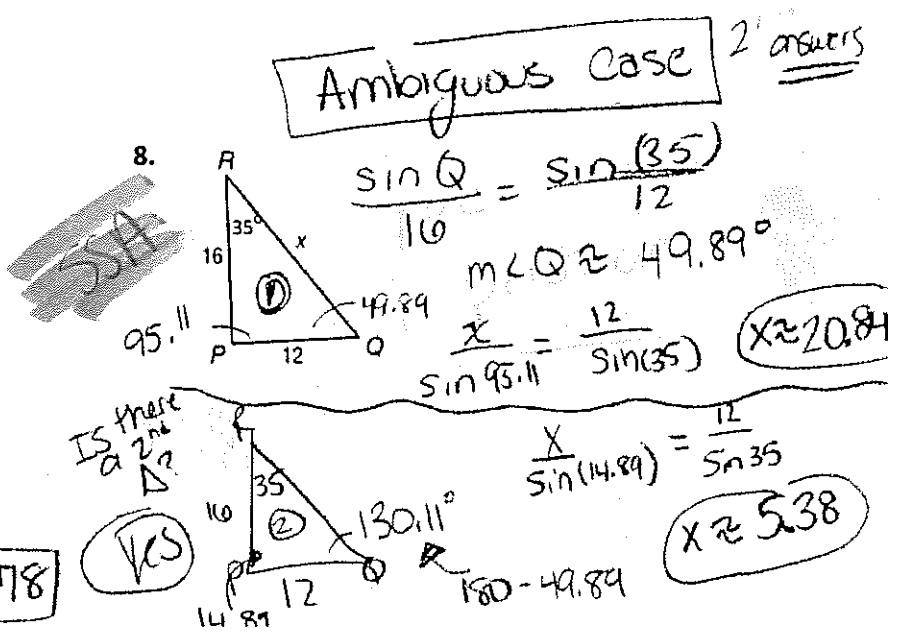 Ambiguous Case
2 answers
8.
SSA
R
35°
16
x
①
49.89
95.11
P
12
Q
sin Q / 16 = sin (35) / 12
m∠Q ≈ 49.89°
x / sin 95.11 = 12 / sin(35)
x≈20.84
Is there
a 2nd
Δ?
yes
R
35
16
②
130.11°
P
12
Q
180-49.89
14.89
x / sin(14.89) = 12 / sin 35
x ≈ 5.38
78